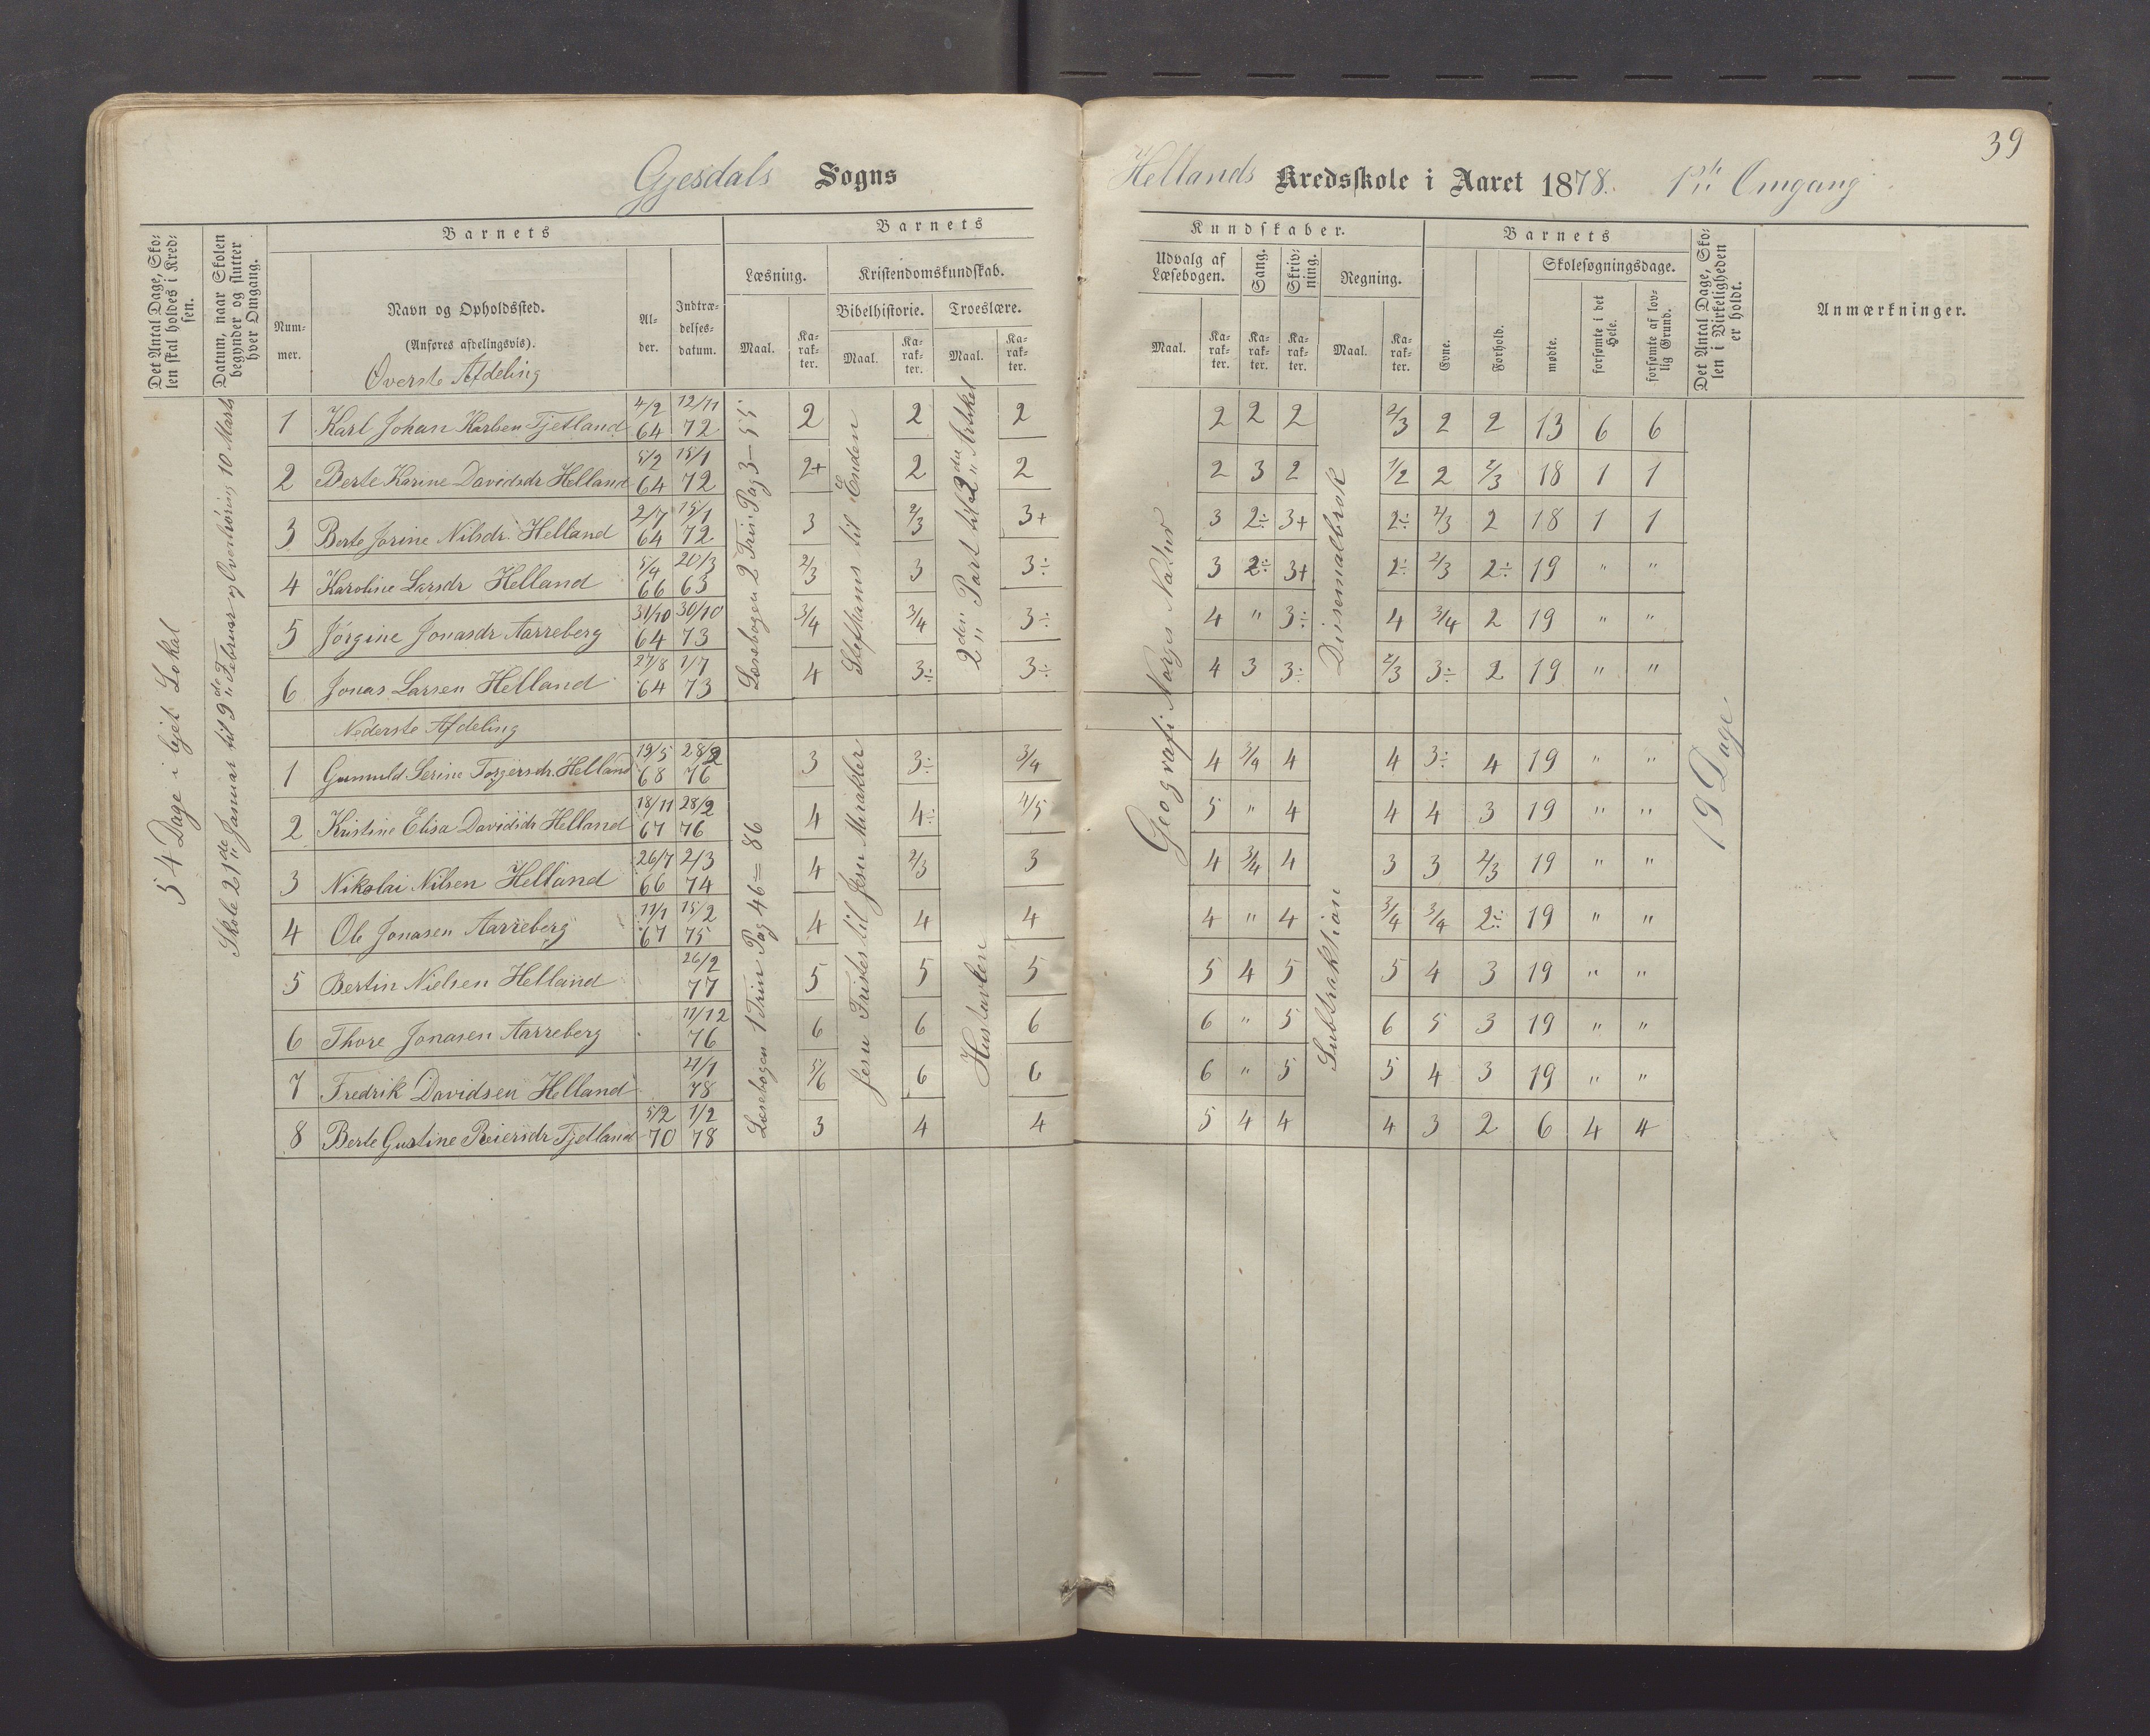 39
Gjesdals Sogns Hellands Kredsskole i Aaret 1878. 1ste Omgang
Det Antal Dage, Skolen skal holdes i Kredsen.
Datum, naar Skolen begynder og slutter hver Omgang.
Barnets
Nummer.
Navn og Opholdssted.
(Anføres afdelingsvis).
Alder.
Indtrædelsesdatum.
Barnets Kundskaber.
Læsning.
Maal. Karakter.
Kristendomskundskab.
Bibelhistorie. Troeslære.
Maal. Karakter. Maal. Karakter.
Udvalg af Læsebogen.
Maal. Karakter.
Sang.
Karakter.
Skrivning.
Karakter.
Regning.
Maal. Karakter.
Barnets
Evne. Forhold.
Skolesøgningsdage.
mødte. forsømte i det Hele. forsømte af lovlig Grund.
Det Antal Dage, Skolen i Virkeligheden er holdt.
Anmærkninger.
54 Dage i lejet Lokal
Skole 21de Januar til 9de Februar og Overhøring 10 Marts
Øverste Afdeling
Læsebogen 2 Trin: Pag 3 — 55
Steffanus til Enden
2den Part til 2den Artikel
Geografi: Norges Natur
Desimalbrøk
19 Dage
1 Karl Johan Karlsen Tjetland 4/2 64 12/11 72 2 2 2 2 2 2 2/3 2 2 13 6 6
2 Berte Karine Davidsdr Helland 5/2 64 15/1 72 2+ 2 2 2 3 2 1/2 2 2/3 18 1 1
3 Berte Jorine Nilsdr. Helland 2/7 64 15/1 72 3 2/3 3+ 3 2÷ 3+ 2÷ 2/3 2 18 1 1
4 Karoline Larsdr Helland 5/4 66 20/3 63 2/3 3 3÷ 3 2÷ 3+ 2÷ 2/3 2÷ 19 " "
5 Jørgine Jonasdr Aarreberg 31/10 64 30/10 73 3/4 3/4 3÷ 4 " 3÷ 4 3/4 2 19 " "
6 Jonas Larsen Helland 27/8 64 1/7 73 4 3÷ 3÷ 4 3 3÷ 2/3 3÷ 2 19 " "
Nederste Afdeling
Læsebogen 1 Trin Pag 46 = 86
Jesu Fristes til Jesu Mirakler
Hustavlen
Subtraktion
1 Gunnuld Serine Torgersdr. Helland 19/5 68 28/2 76 3 3÷ 3/4 4 3/4 4 4 3÷ 4 19 " "
2 Kristine Elisa Davidsdr Helland 18/11 67 28/2 76 4 4÷ 4/5 5 " 4 4 4 3 19 " "
3 Nikolai Nilsen Helland 26/7 66 2/3 74 4 2/3 3 4 3/4 4 3 3 2/3 19 " "
4 Ole Jonasen Aarreberg 11/1 67 15/2 75 4 4 4 4 " 4 3/4 3/4 2÷ 19 " "
5 Bertin Nielsen Helland 26/2 77 5 5 5 5 4 5 5 4 3 19 " "
6 Thore Jonasen Aarreberg 11/12 76 6 6 6 6 " 5 6 5 3 19 " "
7 Fredrik Davidsen Helland 21/1 78 5/6 6 6 6 " 5 5 4 3 19 " "
8 Berte Gustine Reiersdr Tjetland 5/2 70 1/2 78 3 4 4 5 4 4 4 3 2 6 4 4